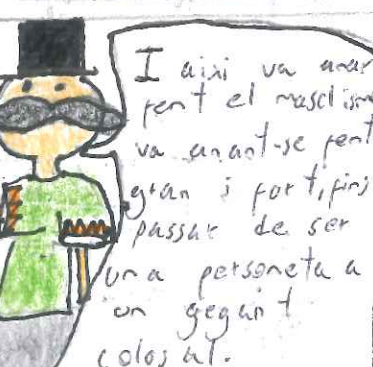 I aixi va anar
fent el masclism
va anant-se fent
gran i fort, fins
passar de ser
una personeta a
un gegant
colosal.